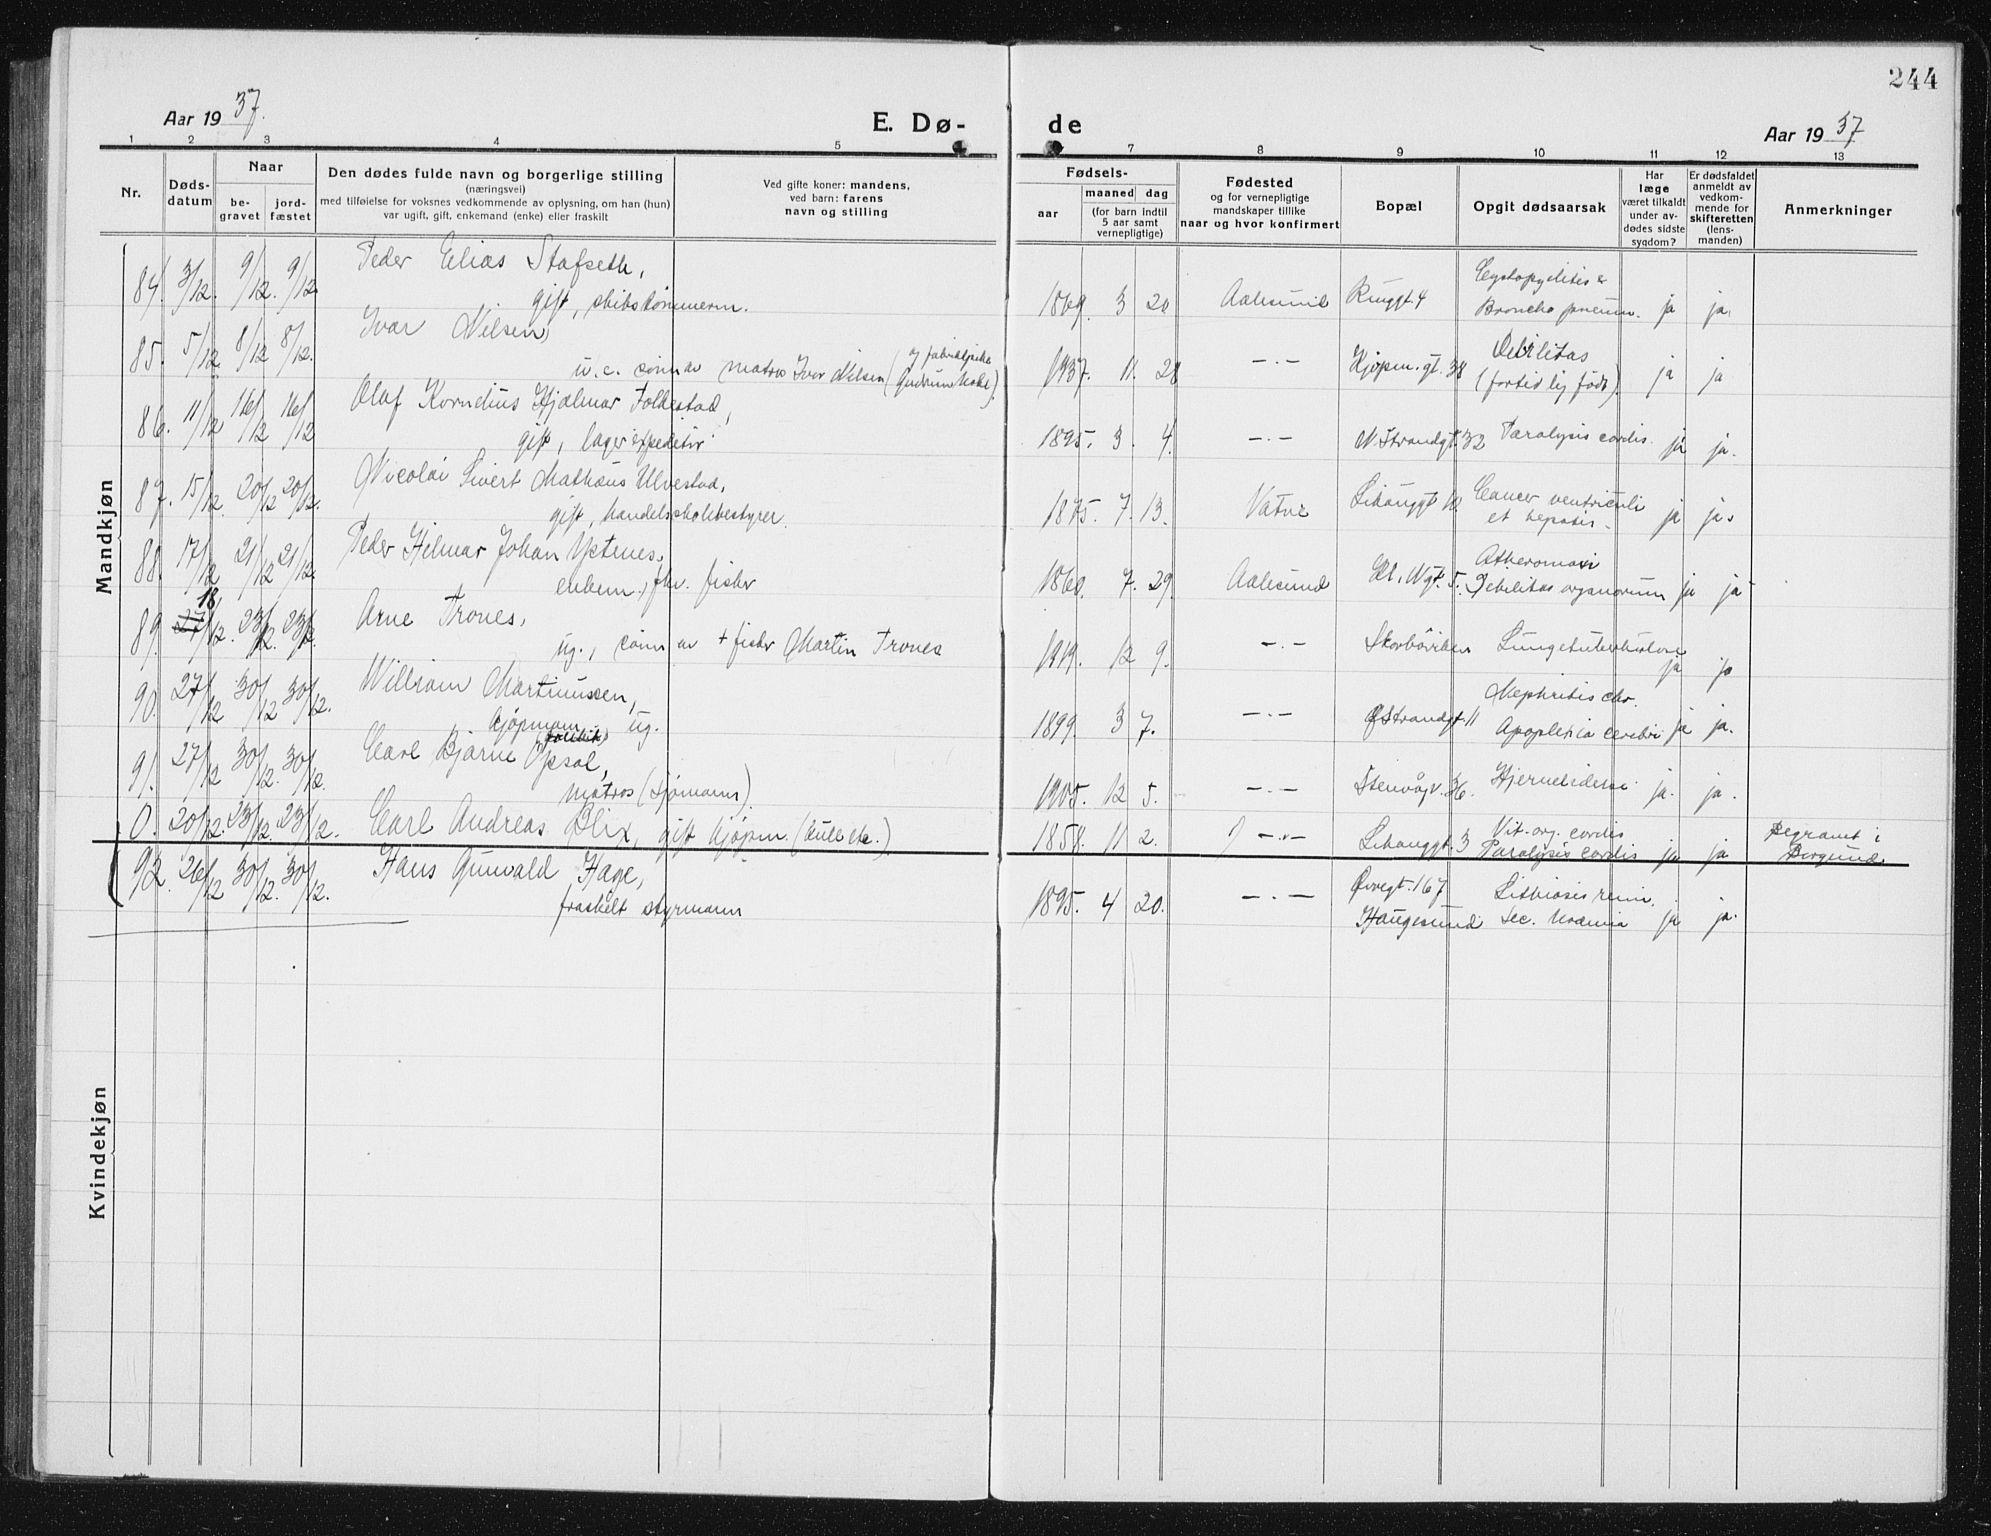 244
Aar 1937.
E. Dø-
de
Aar 1937
1 2 3 4 5 7 8 9 10 11 12 13
Nr.
Døds-
datum
Naar
be-
gravet
jord-
fæstet
Den dødes fulde navn og borgerlige stilling
(næringsvei)
med tilføielse for voksnes vedkommende av oplysning, om han (hun)
var ugift, gift, enkemand (enke) eller fraskilt
Ved gifte koner: mandens,
ved barn: farens
navn og stilling
Fødsels-
aar
maaned dag
(for barn indtil
5 aar samt
vernepligtige)
Fødested
og for vernepligtige
mandskaper tillike
naar og hvor konfirmert
Bopæl
Opgit dødsaarsak
Har
læge
været tilkaldt
under av-
dødes sidste
sygdom?
Er dødsfaldet
anmeldt av
vedkom-
mende for
skifteretten
(lens-
manden)
Anmerkninger
Mandkjøn
84. 3/12. 9/12. 9/12. Peder Elias Stafseth,
gift, skibstømmerm. 1869. 3 20 Aalesund Ringgt. 4 Cystopyelitis &
Broncho pneum. ja ja.
85. 5/12 8/12 8/12. Ivar Nilsen,
u.e. sønn av matros Ivar Nilsen (og fabrikkpike
Gudrun ). 1937. 11. 28 — . — Kjøpm. gt. 38 Debilitas
(fortidlig født). ja ja
86. 11/12 16/12 16/12 Olaf Kornelius Hjalmar Folkestad,
gift, lagerekspeditør. 1895. 3. 4. — . — N. Strandgt. 32 Paralysis cordis. ja ja.
87. 15/12. 20/12 20/12. Nicolai Sivert Mathæus Ulvestad,
gift, handelsskolebestyrer. 1875. 7. 13. Vatne Lihauggt. Cancer ventriculi
et hepatis. ja ja.
88. 17/12 21/12 21/12. Peder Hilmar Johan Ystenes,
enkem., fhv. fisker 1860. 7. 29. Aalesund Kl. Ngt. 5. Atheromasi
Debilitas organorum ja ja
89. 18/12. 23/12. 23/12. Arne Trones,
ug., sønn av + fisker Martin Trones 1919. 12 9. — . — Skarbøviken Lungetuberkulose ja ja
90. 27/12 30/12 30/12. William Martinussen,
kjøpmann, ug. 1899. 3 7. — . — Ø Strandgt. 11 Nephritis chr.
Apoplexia cerebri ja ja.
91. 27/12 30/12. 30/12. Carl Bjarne Opsal,
matros (sjømann). 1905. 12 5. — . — Stenvågv. 36. Hjernelidelse. ja. ja.
0. 20/12. 23/12. 23/12. Carl Andreas Blix, gift kjøpm. (kull etc.) 1858. 11 2. — . — Lihauggt. 3 Vit. org. cordis
Paralysis cordis ja ja Begravet i
Borgund.
92. 26/12 30/12. 30/12. Hans Gunvald Hage,
fraskilt styrmann 1895. 4 20. — . — Øvregt. 167
Haugesund Lithiasis renis.
Sec. Uræmia ja ja.
Kvindekjøn